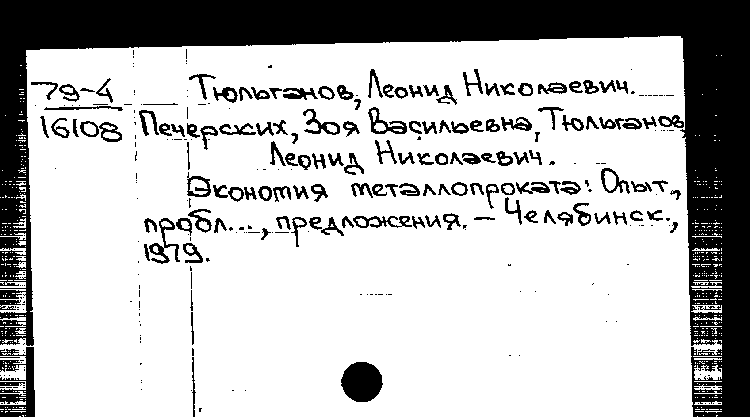 79-4 Тюльганов, Леонид Николаевич.
16108 Печерских, Зоя Васильевна, Тюльганов
Леонид Николаевич.
Экономия металлопроката: Опыт,
пробл..., предложения. – Челябинск.,
1979.